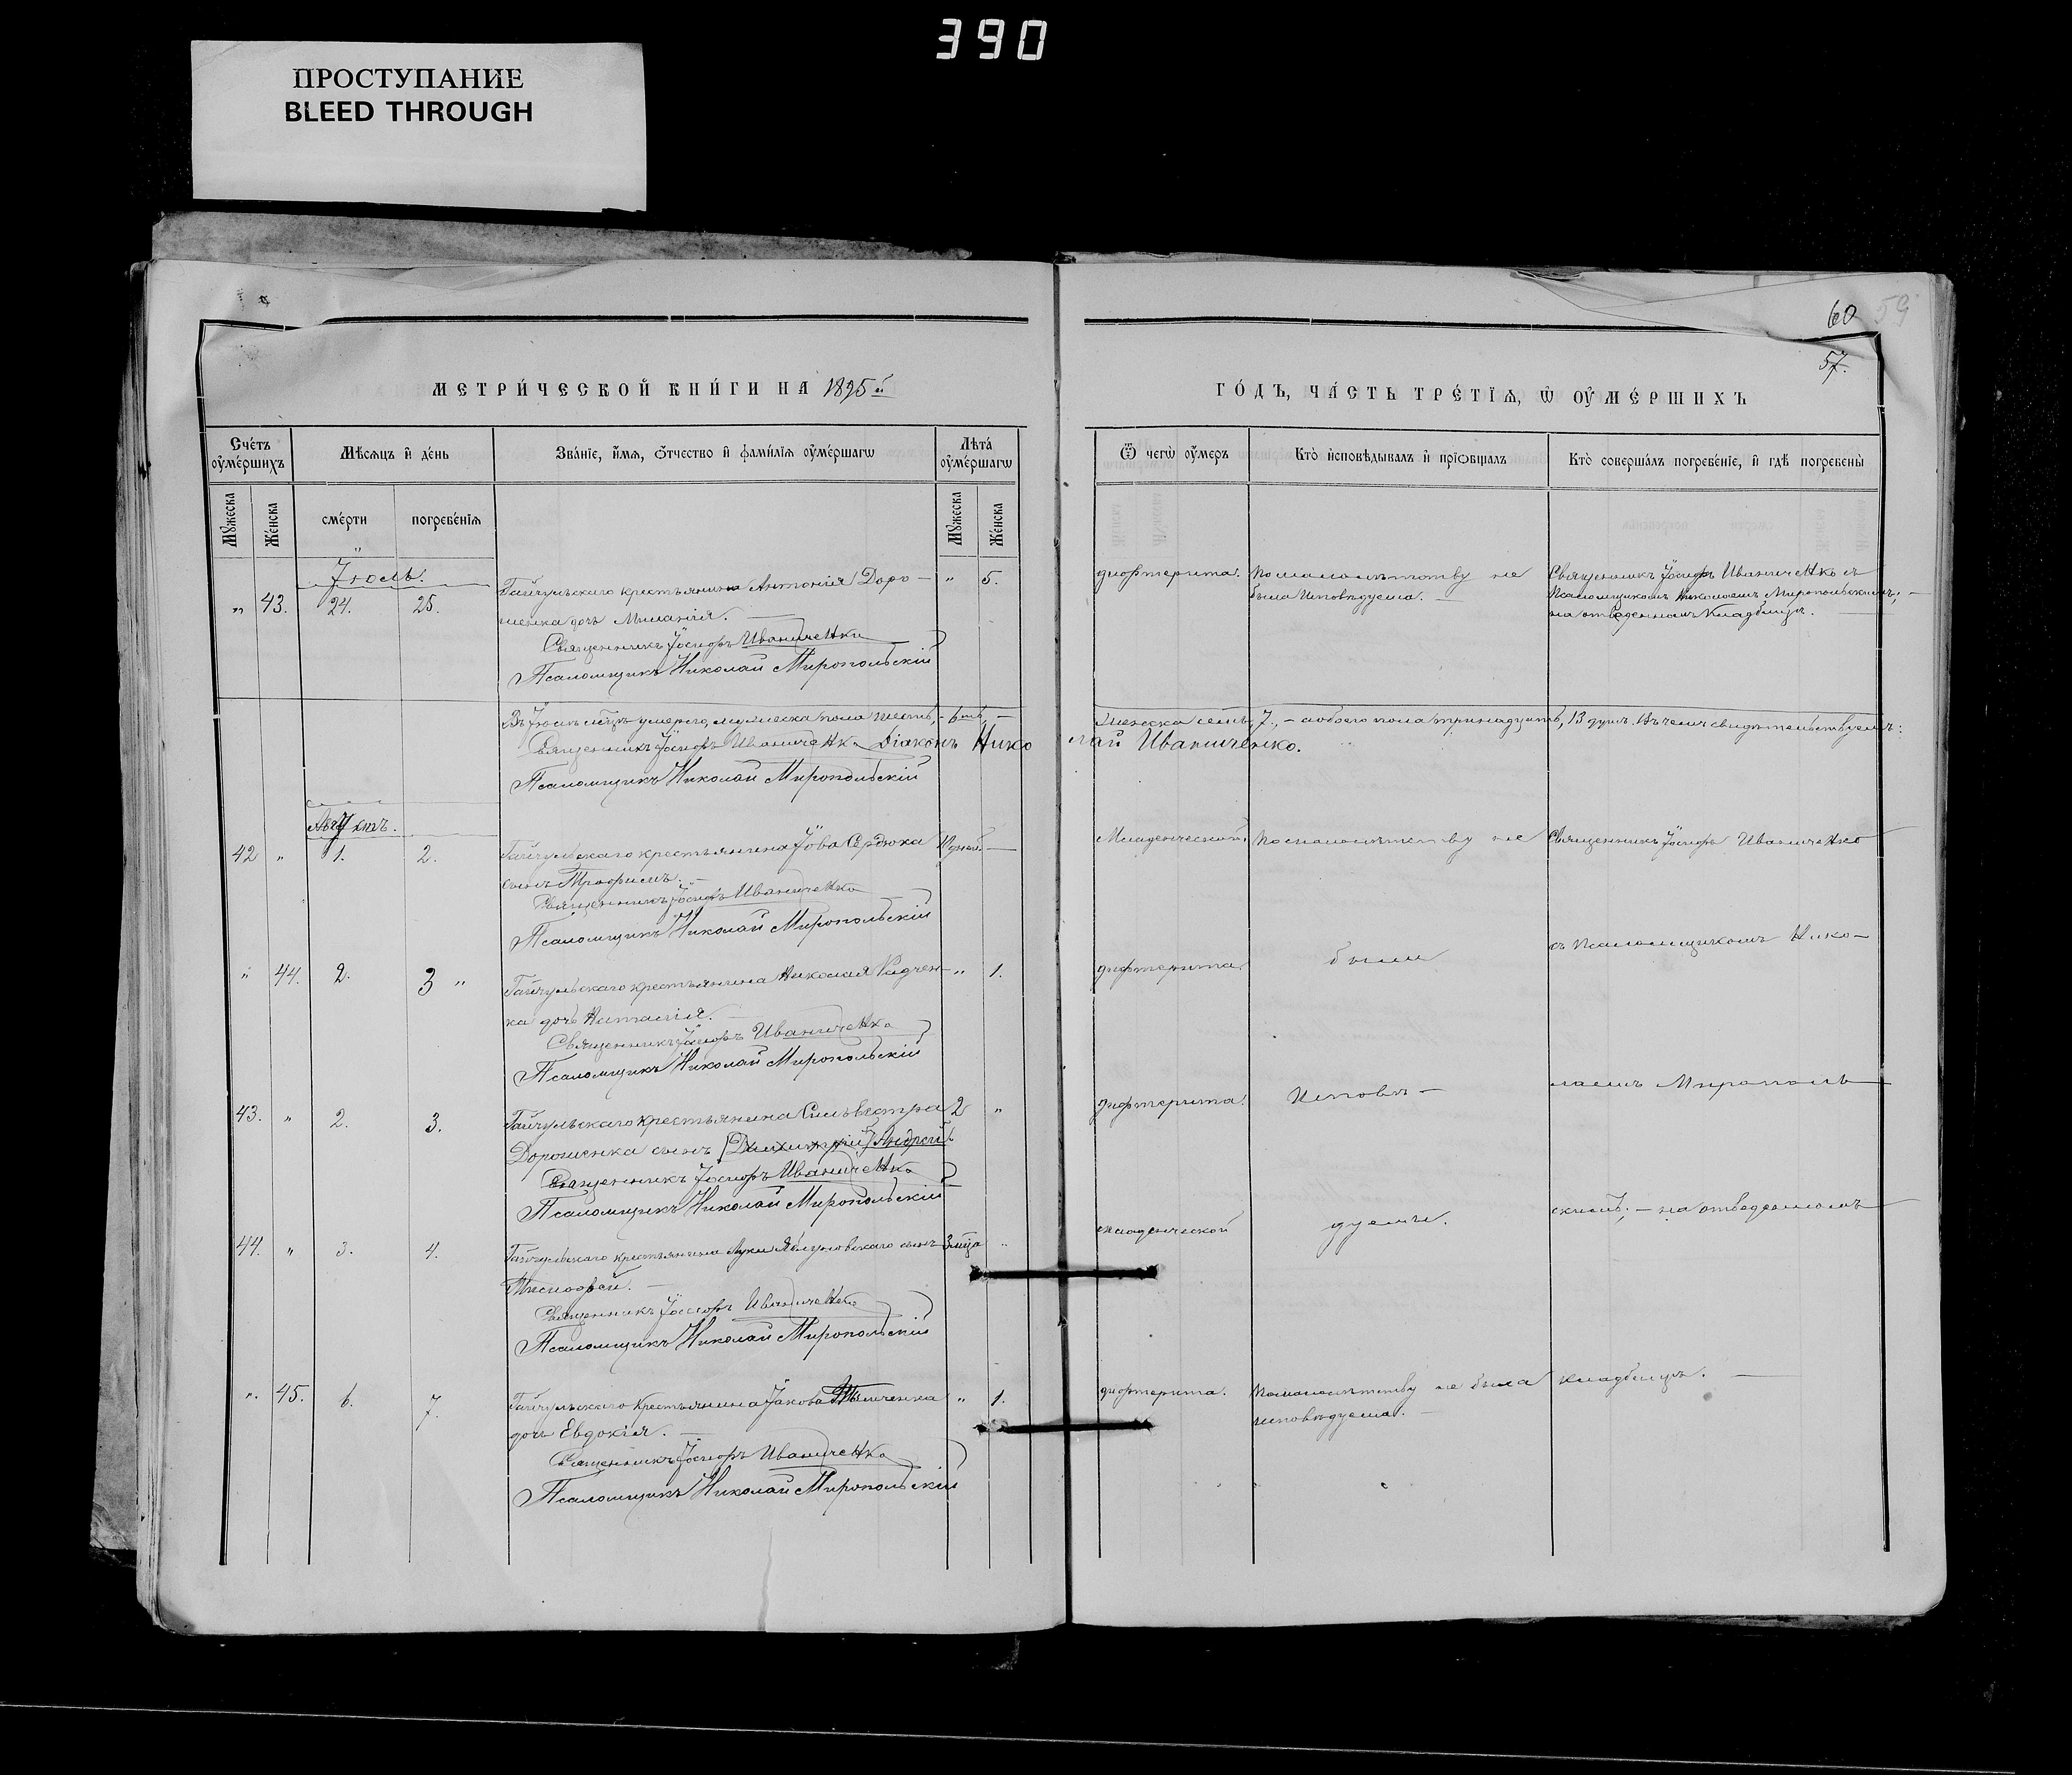 390
ПРОСТУПАНИЕ
BLEED THROUGH
60 59
57.
МЕТРИ́ЧЕСКОЙ КНИ́ГИ НА 1895й
ГО́ДЪ, ЧА́СТЬ ТРЕ́ТІѦ, Ѡ҆ ОУ҆МЕ́РШИХЪ
Сче́тъ оу҆ме́ршихъ
Мѣсѧцъ и҆ де́нь
Зва́нїе, и҆́мѧ, ѻ҆́тчество и҆ фами́лїѧ оу҆ме́ршагѡ
Лѣта̀ оу҆ме́ршагѡ
Ѿ чегѡ̀ оу҆́меръ
Кто̀ и҆сповѣ́дывалъ и҆ прїѻбщалъ
Кто̀ соверша́лъ погребе́нїе, и҆ гдѣ̀ погребены̀
Мꙋжеска
Же́нска
сме́рти
погребе́нїѧ
Мꙋжеска
Же́нска
Іюль.
„ 43. 24. 25. Гайчульскаго крестьянина Антонія Доро- „ 5.
шенка дочь Миланія. —
Священникъ Іосифъ Иваниченко
Псаломщикъ Николай Миропольскій
дифтерита. По малолѣтству не
была исповѣдуема. —
Священникъ Іосифъ Иваниченко съ
Псаломщикомъ Николаемъ Миропольскимъ; —
на отведенномъ кладбищѣ.
Въ Іюлѣ мѣсяцѣ умерло, мужеска пола шесть, - 6ть, - женска семь, 7., - обоего пола тринадцать, 13 душъ. Въ чемъ свидѣтельствуемъ:
Священникъ Іосифъ Иваниченко Діаконъ Николай Иваниченко.
Псаломщикъ Николай Миропольскій
Августъ.
42 „ 1. 2. Гайчульскаго крестьянина Іова Сердюка дней —
сынъ Трофимъ. —
Священникъ Іосифъ Иваниченко
Псаломщикъ Николай Миропольскій
Младенческой По малолѣтству не Священникъ Іосифъ Иваниченко
„ 44. 2. 3 „ Гайчульскаго крестьянина Николая Радчен- „ 1.
ка дочь Наталія. —
Священникъ Іосифъ Иваниченко
Псаломщикъ Николай Миропольскій
дифтерита были съ Псаломщикомъ Нико-
43. „ 2. 3. Гайчульскаго крестьянина Сильвестра 2 „
Дорошенка сынъ [Димитрій] Андрей
Священникъ Іосифъ Иваниченко
Псаломщикъ Николай Миропольскій
дифтерита. Исповѣ- лаемъ Мирополь-
44. „ 3. 4. Гайчульскаго крестьянина Луки Яблуновскаго сынъ 3 мца „
Тимофей. —
Священникъ Іосифъ Иваниченко
Псаломщикъ Николай Миропольскій
младенческой дуемы. скимъ; — на отведенномъ
„ 45. 6. 7. Гайчульскаго крестьянина Іакова „ 1.
дочь Евдокія. —
Священникъ Іосифъ Иваниченко
Псаломщикъ Николай Миропольскій
дифтерита. По малолѣтству не была кладбищѣ. —
исповѣдуема. —